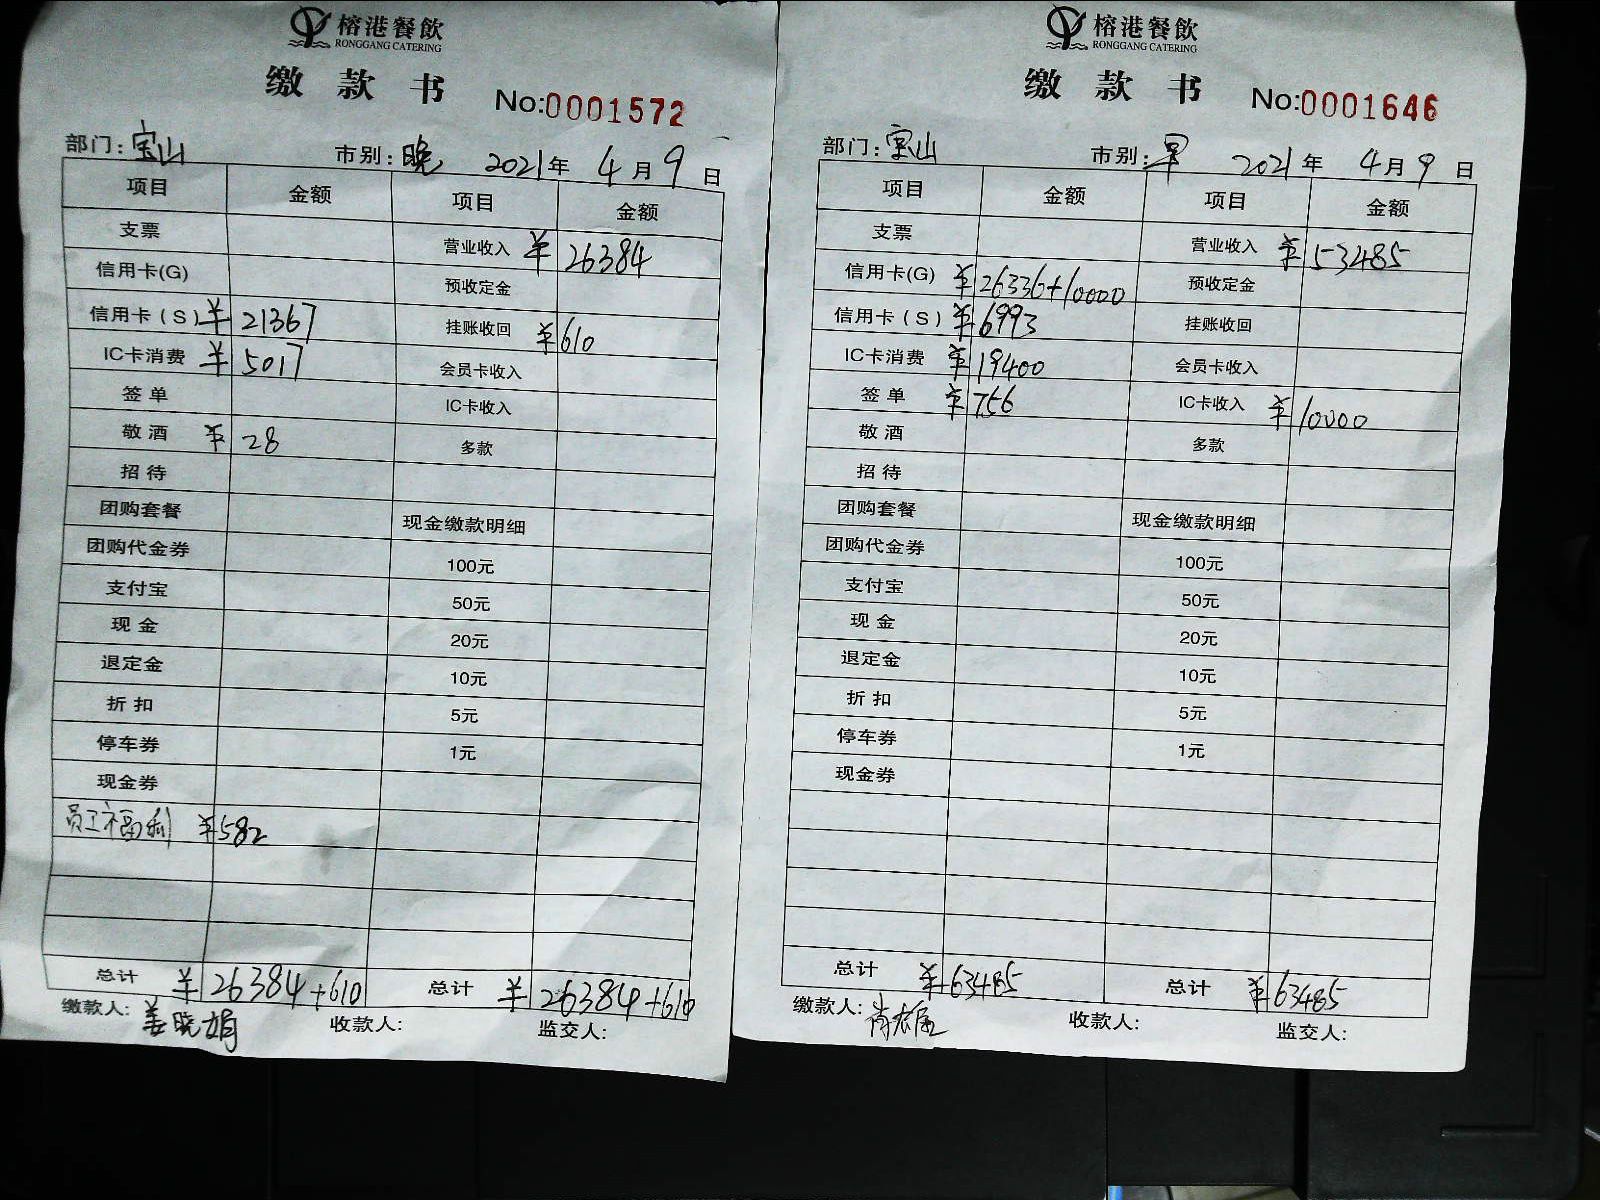 榕港餐飲
RONGGANG CATERING
缴款书 No:0001572
部门：宝山 市别：晚 2021年 4月 9日
项目 金额 项目 金额
支票 营业收入 ¥26384
信用卡(G) 预收定金
信用卡（S） ¥21367 挂账收回 ¥610
IC卡消费 ¥5017 会员卡收入
签单 IC卡收入
敬酒 ¥28 多款
招待
团购套餐 现金缴款明细
团购代金券 100元
支付宝 50元
现金 20元
退定金 10元
折扣 5元
停车券 1元
现金券
员工福利 ¥582
总计 ¥26384+610 总计 ¥26384+610
缴款人：姜晓娟 收款人： 监交人：
榕港餐飲
RONGGANG CATERING
缴款书 No:0001646
部门：宝山 市别：早 2021年 4月 9日
项目 金额 项目 金额
支票 营业收入 ¥53485
信用卡(G) ¥26336+10000 预收定金
信用卡（S） ¥6993 挂账收回
IC卡消费 ¥19400 会员卡收入
签单 ¥756 IC卡收入 ¥10000
敬酒 多款
招待
团购套餐 现金缴款明细
团购代金券 100元
支付宝 50元
现金 20元
退定金 10元
折扣 5元
停车券 1元
现金券
总计 ¥63485 总计 ¥63485
缴款人： 收款人： 监交人：